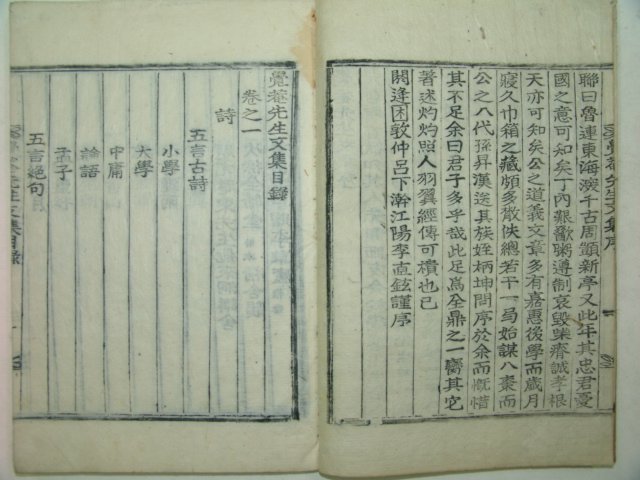 聯曰魯連東海濺千古周顗新亭又此年其忠君憂
國之意可知矣丁內艱歠粥遵制哀毀柴瘠誠孝根
天亦可知矣公之道義文章多有嘉惠後學而歲月
寢久巾箱之藏頗多散佚總若干一局始謀入棗而
公之八代孫昇漢送其族姪炳坤問序於余而慨惜
其不足余曰君子多乎哉此足爲全鼎之一臠其它
著述灼灼照人羽翼經傳可樻也已
閼逢困敦仲呂下澣江陽李直鉉謹序
覺菴先生文集序
一
覺菴先生文集目錄
卷之一
詩
五言古詩
小學
大學
中庸
論語
孟子
五言絕句
先生文集目錄
一